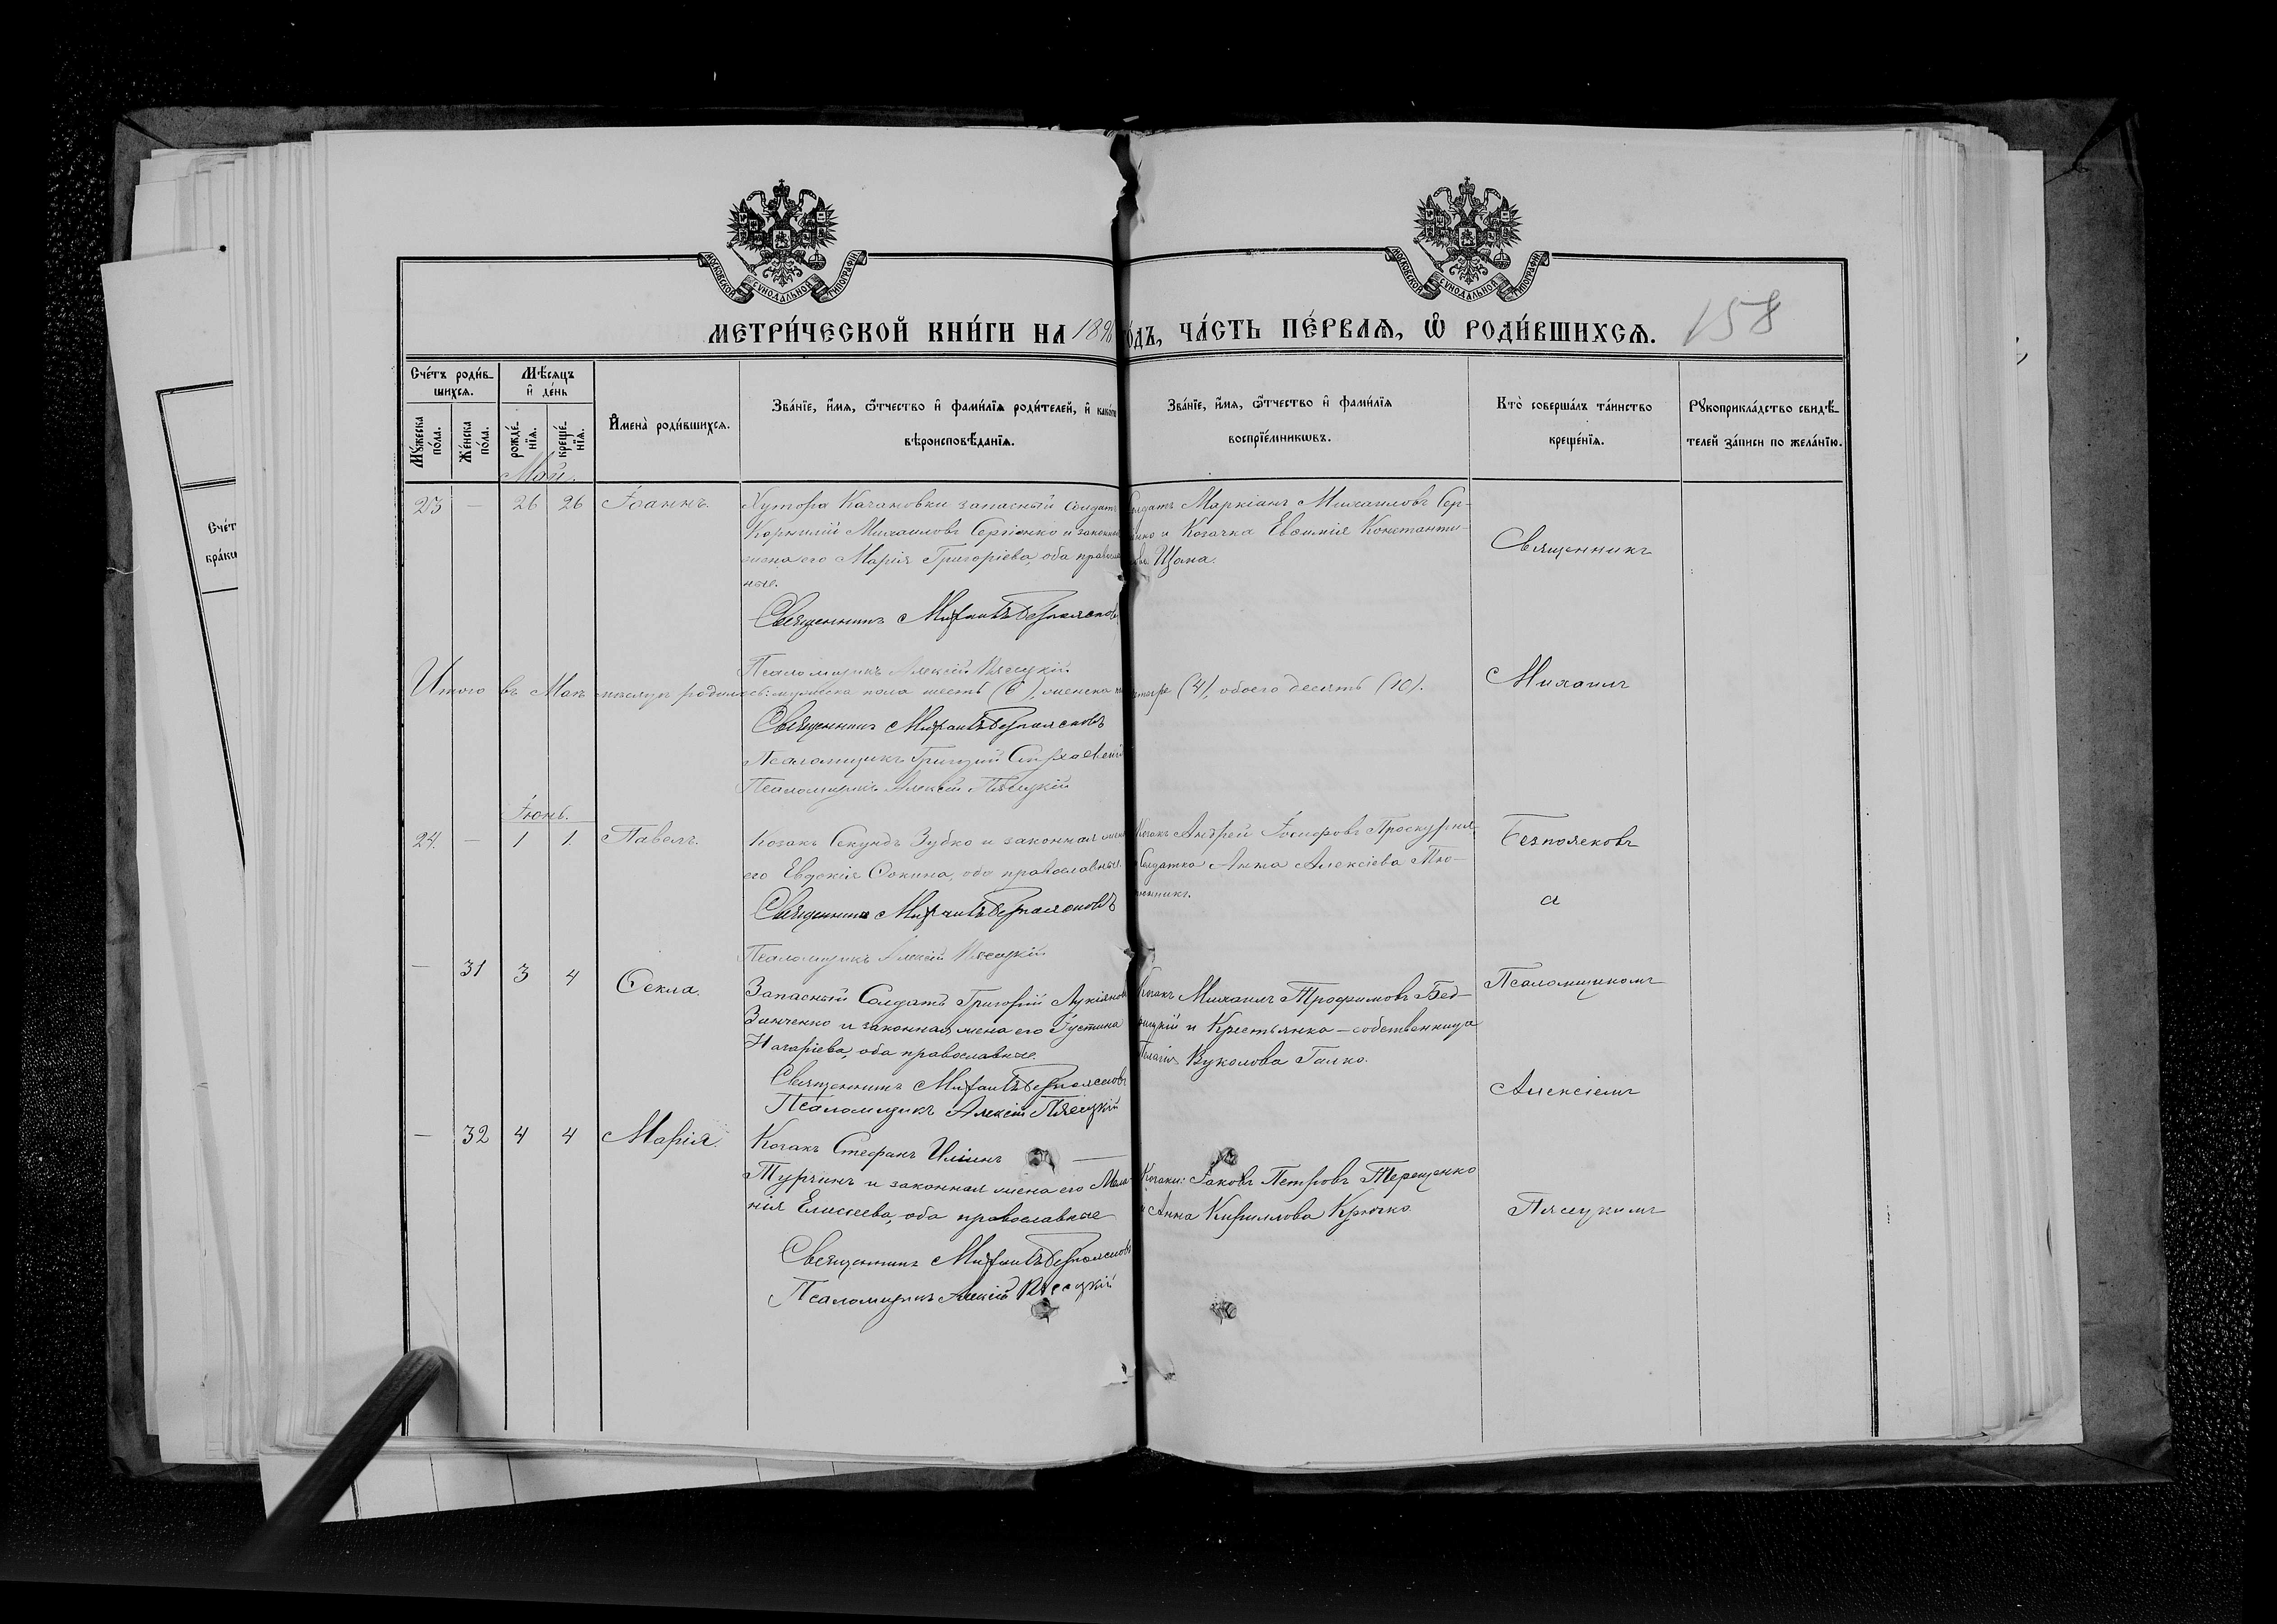 МОСКОВСКОЙ СѴНОДАЛЬНОЙ ТИПОГРАФІИ
МОСКОВСКОЙ СѴНОДАЛЬНОЙ ТИПОГРАФІИ
МЕТРИ́ЧЕСКОЙ КНИ́ГИ НА 189 го́дъ, ЧА́СТЬ ПЕ́РВАѦ, Ѿ РОДИ́ВШИХСѦ.
158
Сче́тъ роди́в-
шихсѧ.
Мѣ́сѧцъ
и҆ де́нь
Мꙋ́жеска
по́ла.
Же́нска
по́ла.
рожде́-
нїѧ.
креще́-
нїѧ.
И҆мена̀ роди́вшихсѧ.
Зва́нїе, и҆́мѧ, ѻ҆́тчество и҆ фами́лїѧ роди́телей, и҆ како́гѡ
вѣроисповѣ́данїѧ.
Зва́нїе, и҆́мѧ, ѻ҆́тчество и҆ фами́лїѧ
воспрїе́мникѡвъ.
Кто̀ соверша́лъ та́инство
креще́нїѧ.
Рꙋкоприкла́дство свидѣ́-
телей за́писи по жела́нїю.
Май.
23 — 26 26 Іоаннъ.
Хутора Качановки запасный солдатъ
Корнилій Михаиловъ Сергіенко и законная
жена его Марія Григоріева, оба православ
ные.
Священникъ Михаилъ Безпоясковъ
Псаломщикъ Алексій Пясецкій
Солдатъ Маркіанъ Михаиловъ Сер-
гіенко и Козачка Евѳимія Константи-
нова Щока.
Священникъ
Итого въ Маѣ мѣсяцѣ родилось: мужеска пола шесть (6), женска четыре (4), обоего десять (10).
Священникъ Михаилъ Безпоясковъ
Псаломщикъ Григорій
Псаломщикъ Алексій Пясецкій
Михаилъ
Іюнь.
24. — 1 1. Павелъ.
Козакъ Секундъ Зубко и законная жена
его Евдокія Ѳокина, оба православные.
Священникъ Михаилъ Безпоясковъ
Псаломщикъ Алексій Пясецкій
Козакъ Андрей Іосифовъ Проскурня
Солдатка Анна Алексіева
Безпоясковъ
а
— 31 3 4 Ѳекла.
Запасный Солдатъ Григорій Лукіяновъ
Зинченко и законная жена его Іустина
Назаріева, оба православные.
Священникъ Михаилъ Безпоясковъ
Псаломщикъ Алексій Пясецкій
Козакъ Михаилъ Трофимовъ Бед-
и Крестьянка-собственница
Пелагія Вуколова Галко.
Псаломщикомъ
Алексіемъ
— 32 4 4 Марія.
Козакъ Стефанъ Ильинъ —
Турчинъ и законная жена его Мала-
нія Елисеева, оба православные
Священникъ Михаилъ Безпоясковъ
Псаломщикъ Алексій Пясецкій
Козаки: Іаковъ Петровъ Терещенко
и Анна Кириллова Крючко.
Пясецкимъ
Сче́т
бра́ко